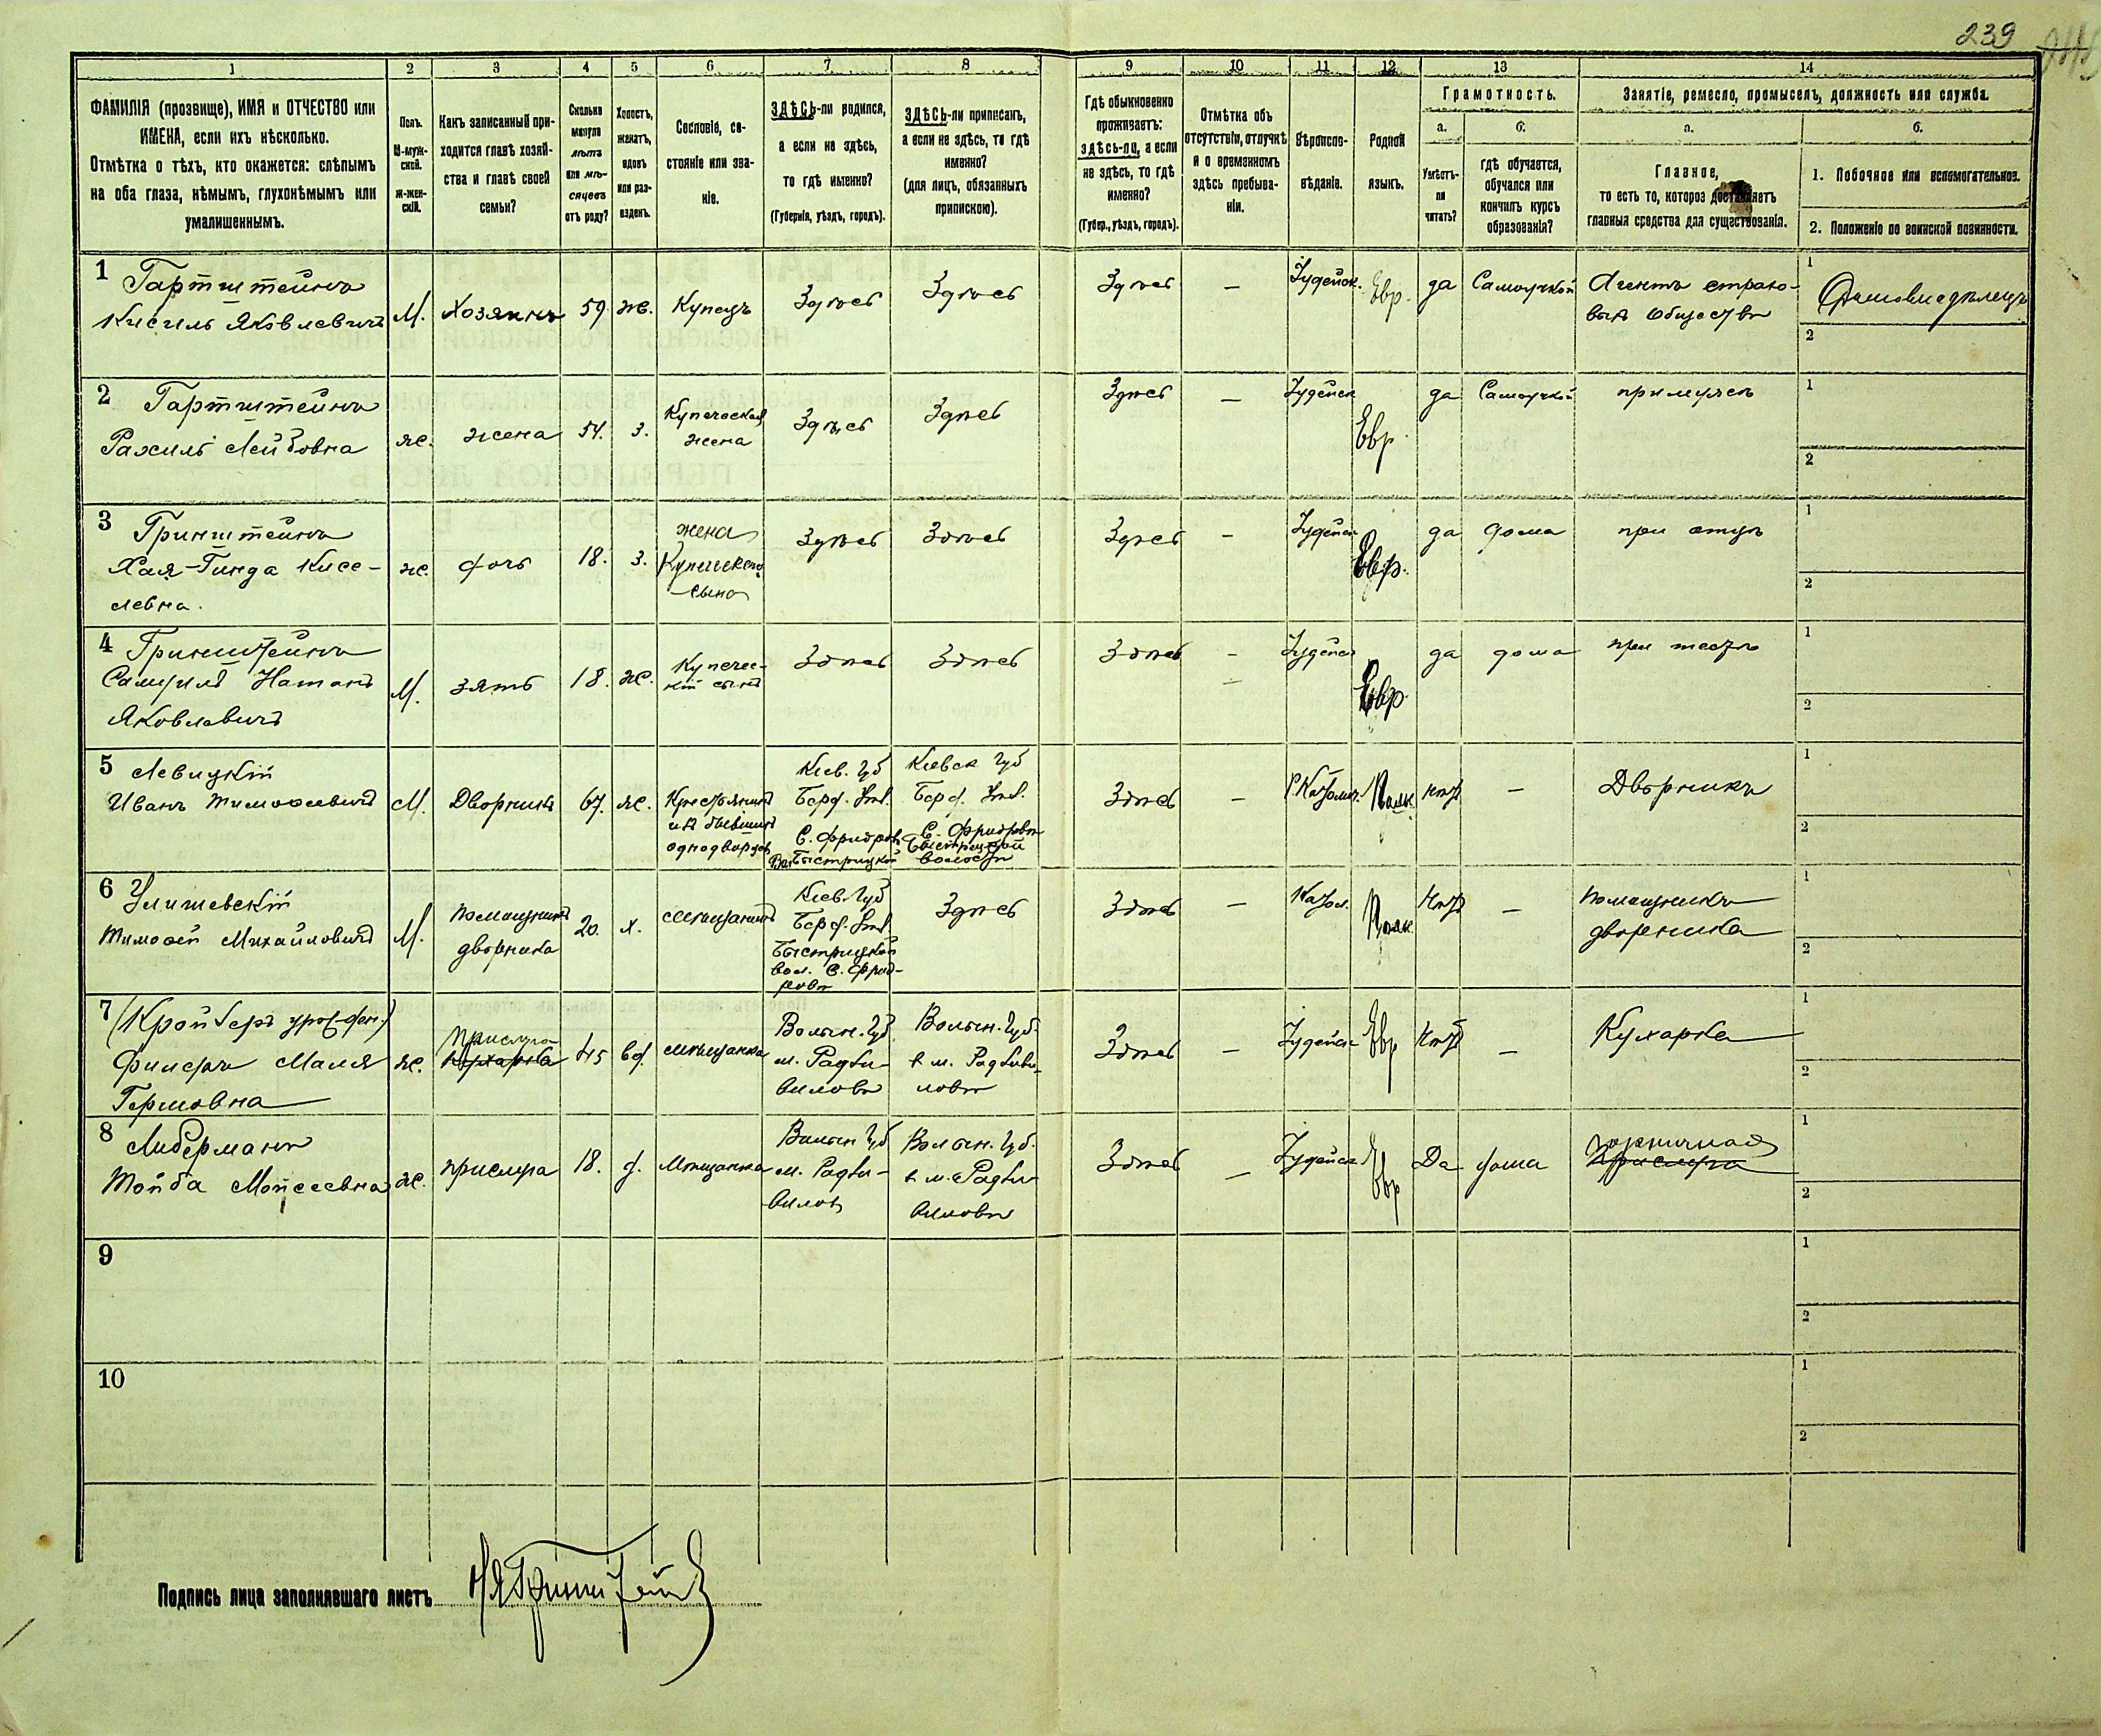 239
1 2 3 4 5 6 7 8 9 10 11 12 13 14
ФАМИЛІЯ (прозвище), ИМЯ и ОТЧЕСТВО или
ИМЕНА, если ихъ нѣсколько.
Отмѣтка о тѣхъ, кто окажется: слѣпымъ
на оба глаза, нѣмымъ, глухонѣмымъ или
умалишеннымъ.
Полъ.
М-муж-
ской.
Ж-жен-
скій.
Какъ записанный при-
ходится главѣ хозяй-
ства и главѣ своей
семьи?
Сколько
минуло
лѣтъ
или мѣ-
сяцевъ
отъ роду?
Холостъ,
женатъ,
вдовъ
или раз-
веденъ.
Сословіе, со-
стояніе или зва-
ніе.
ЗДѢСЬ-ли родился,
а если не здѣсь,
то гдѣ именно?
(Губернія, уѣздъ, городъ).
ЗДѢСЬ-ли приписанъ,
а если не здѣсь, то гдѣ
именно?
(для лицъ, обязанныхъ
припискою).
Гдѣ обыкновенно
проживаетъ:
здѣсь-ли, а если
не здѣсь, то гдѣ
именно?
(Губер., уѣздъ, городъ).
Отмѣтка объ
отсутствіи, отлучкѣ
и о временномъ
здѣсь пребыва-
ніи.
Вѣроиспо-
вѣданіе.
Родной
языкъ.
Грамотность.
а.
Умѣетъ-
ли
читать?
б.
гдѣ обучается,
обучался или
кончилъ курсъ
образованія?
Занятіе, ремесло, промыселъ, должность или служба.
а.
Главное,
то есть то, которое доставляетъ
главныя средства для существованія.
б.
1. Побочное или вспомогательное.
2. Положеніе по воинской повинности.
1
Гартштейнъ
Кисиль Яковлевичъ
М.
Хозяинъ
59
ж.
Купецъ
Здѣсь
Здѣсь
Здѣсь
—
Іудейск.
Евр.
да
Самоучкой
Агентъ страхо-
выхъ Обществъ
1
Домовладѣлецъ
2
2
Гартштейнъ
Рахиль Лейбовна
ж.
жена
54.
з.
Купеческая
жена
Здѣсь
Здѣсь
Здѣсь
—
Іудейск
Евр.
да
Самоучкой
при мужѣ
1
2
3
Гринштейнъ
Хая-Гинда Кисе-
левна.
ж.
дочь
18.
з.
жена
Купеческаго
сына
Здѣсь
Здѣсь
Здѣсь
—
Іудейск
Евр.
да
дома
при отцѣ
1
2
4
Гринштейнъ
Самуилъ Натанъ
Яковлевичъ
М.
зять
18.
ж.
Купечес-
кій сынъ
Здѣсь
Здѣсь
Здѣсь
—
Іудейск
Евр.
да
дома
при тестѣ
1
2
5
Левицкій
Иванъ Тимофеевичъ
М.
Дворникъ
67.
ж.
Крестьянинъ
изъ бывшихъ
однодворцевъ
Кіев. губ
Берд. Уѣз.
С. Фридров
Вол. Быстрицкой
Кіевск губ
Берд. Уѣз.
С. Фридровѣ
Быстрицкой
волости
Здѣсь
—
Р. Католич.
Польс.
нѣтъ
—
Дворникъ
1
2
6
Улишевскій
Тимофей Михайловичъ
М.
помощникъ
дворника
20.
х.
мѣщанинъ
Кіев. губ
Берд. Уѣз.
Быстрицкой
вол. С. Фрид-
ровѣ
Здѣсь
Здѣсь
—
Катол.
Польс.
Нѣтъ
—
помощникъ
дворника
1
2
7
(Кройберъ урожден.)
Фишеръ Маля
Гершовна
ж.
прислуга
кухарка
45
вд.
мѣщанка
Волын. губ.
м. Радзи-
виловъ
Волын. губ.
в м. Радзиви-
ловѣ
Здѣсь
—
Іудейск
Евр
Нѣтъ
—
Кухарка
1
2
8
Либерманъ
Тойба Мойсеевна
ж.
прислуга
18.
д.
Мѣщанка
Волын губ
м. Радзи-
вилов
Волын. губ.
в м. Радзи-
виловѣ
Здѣсь
—
Іудейск
Евр
Да
дома
горничная
прислуга
1
2
9
1
2
10
1
2
Подпись лица заполнявшаго листъ
Гринштейнъ